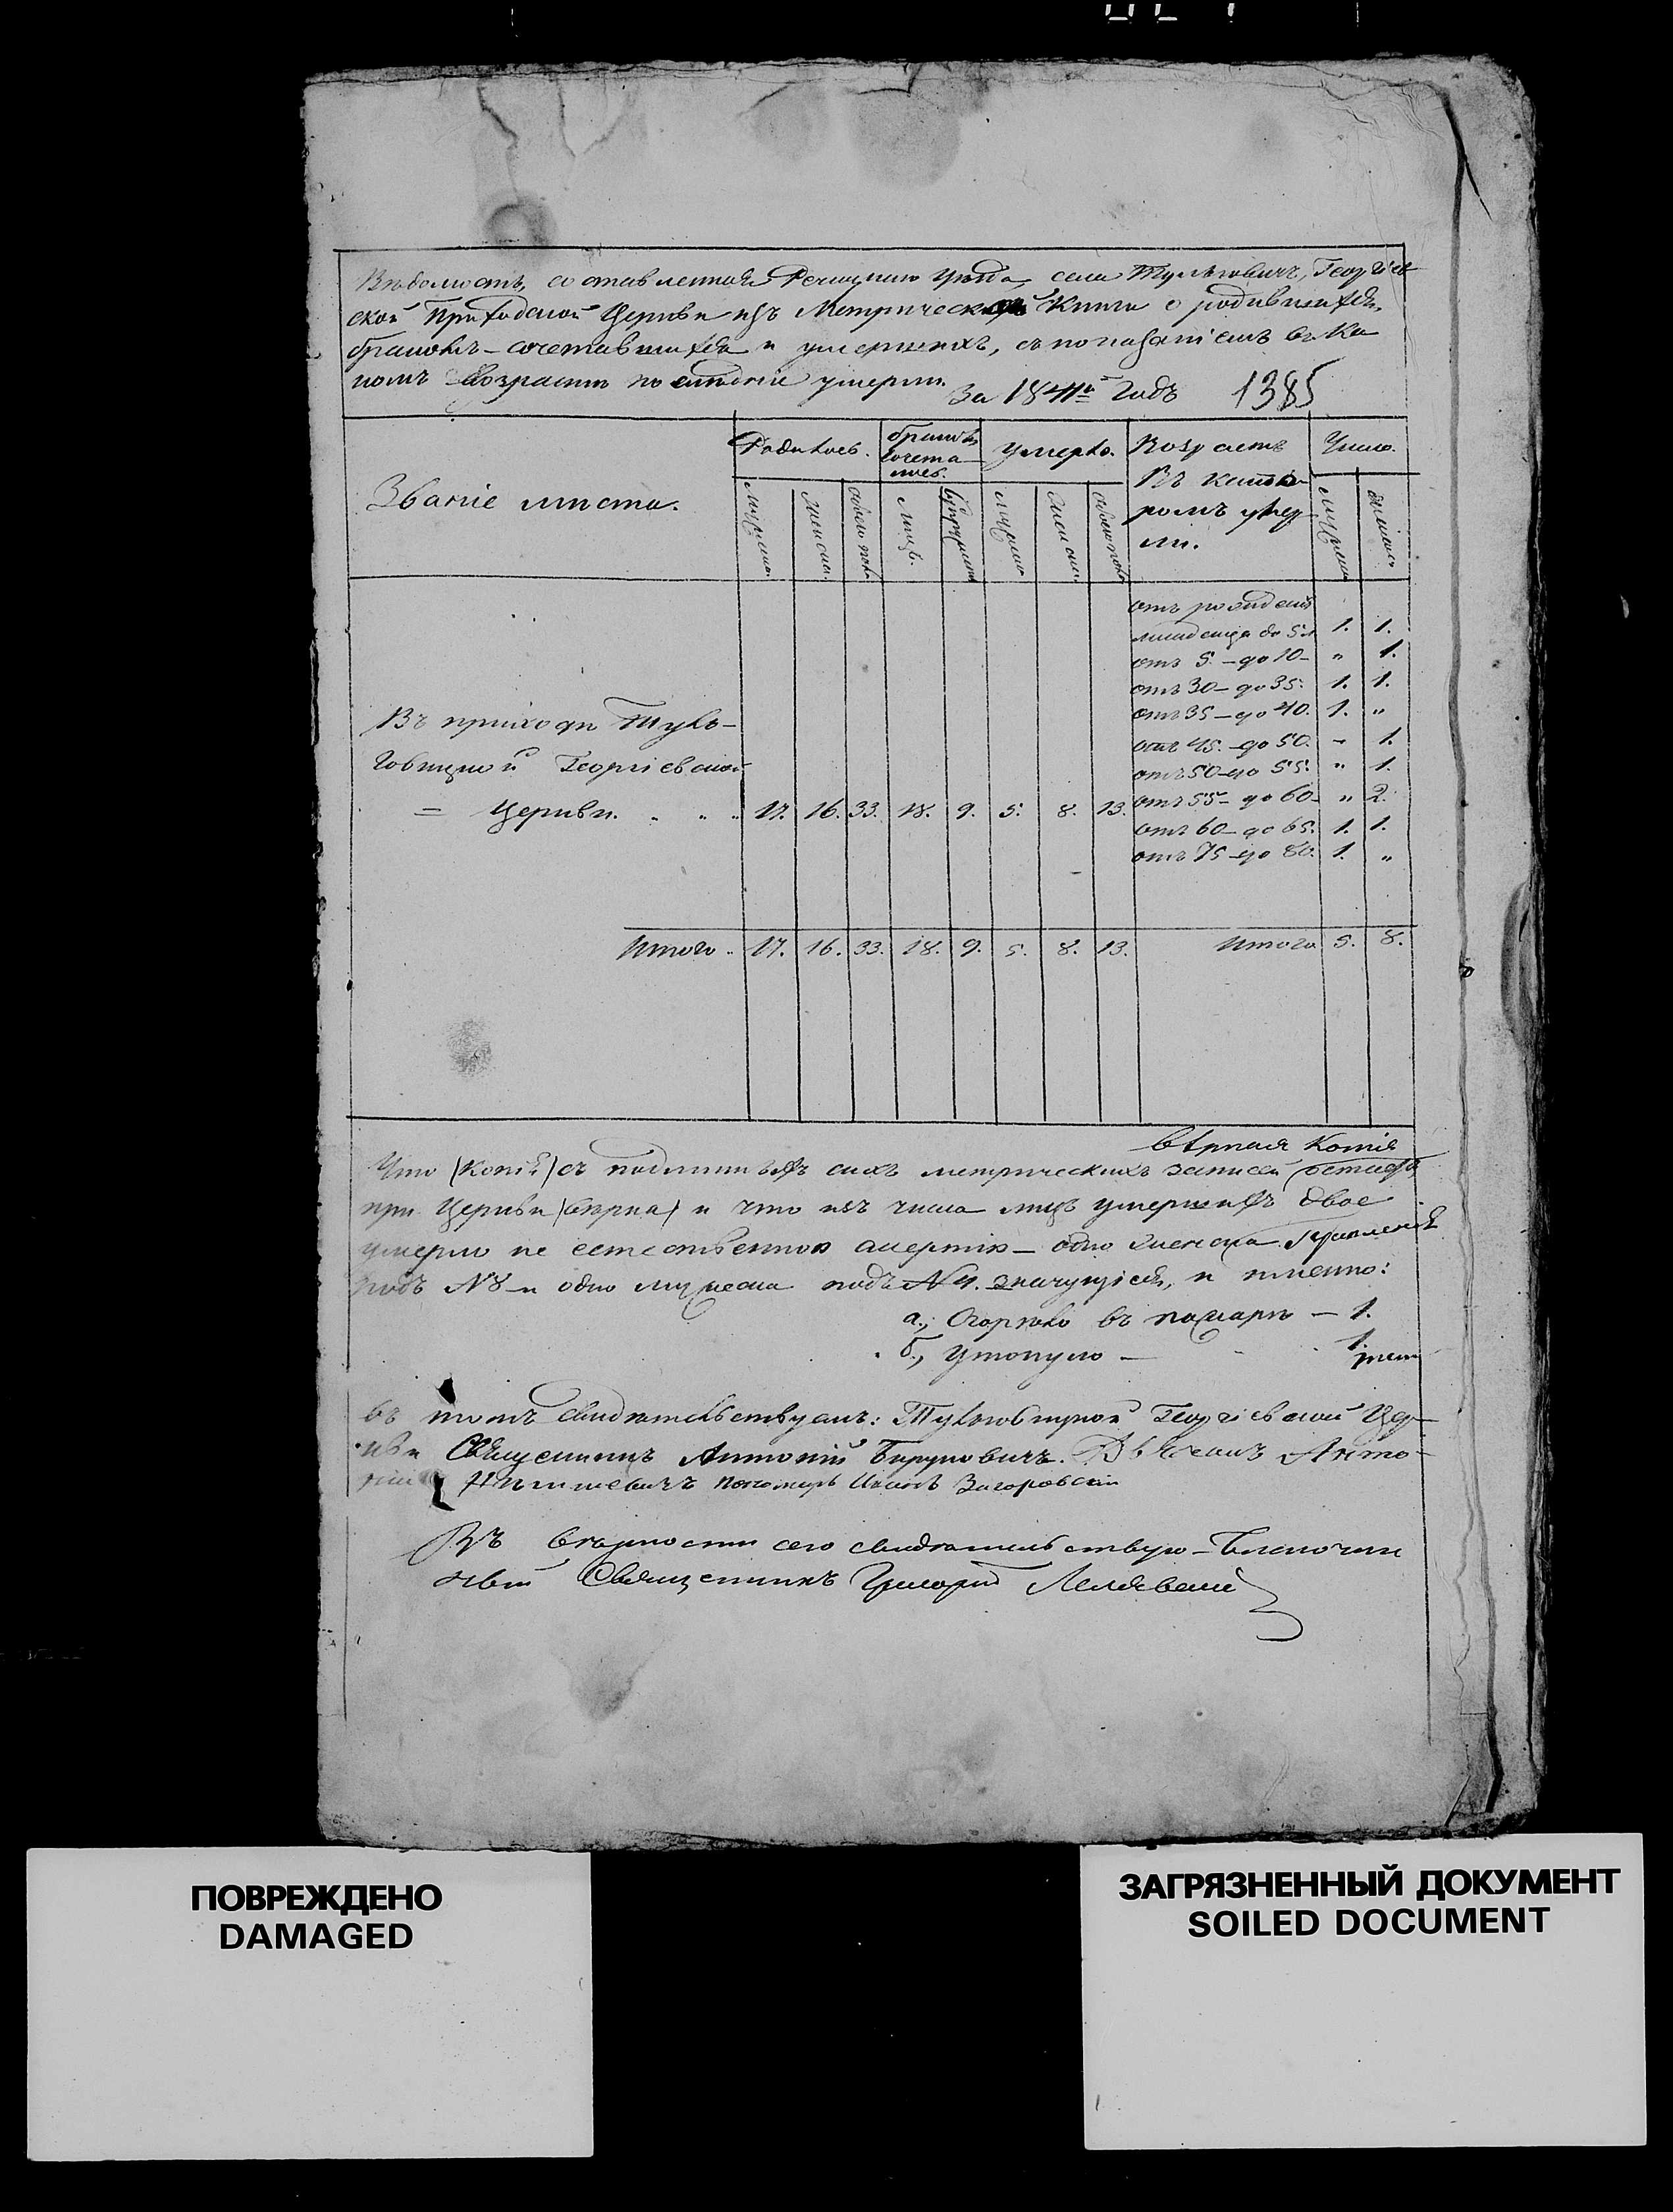 Вѣдомость, составленная Речицкаго уѣзда, села Тульговичъ, Георгіев-
ской Приходской Церкви изъ Метрической Книги о родившихся,
бракомъ-сочетавшихся и умершихъ, съ показаніемъ въ ка
комъ возрастѣ послѣдніе умерли.
За 1841й Годъ 1385
Званіе мѣста.
Родилось.
Бракомъ сочета-лось.
Умерло.
Возрастъ
Въ кото-
ромъ умер-
ли.
Число.
мужеска
женска
обоего пола
лицъ
супружествъ
мужеска
женска
обоего пола
мужеска
женска
отъ рожденія
младенца до 5. 1. 1.
отъ 5. - до 10 - „ 1.
отъ 30 - до 35. 1. 1.
отъ 35 - до 40. 1. „
отъ 45. - до 50. - 1.
отъ 50 - до 55. „ 1.
отъ 55 - до 60 - „ 2.
отъ 60 - до 65. 1. 1.
отъ 75 - до 80. 1. „
Въ приходѣ Туль-
говицкой Георгіевской
= Церкви. . „ „ 17. 16. 33. 18. 9. 5. 8. 13.
Итого „ 17. 16. 33. 18. 9. 5. 8. 13. Итого 5. 8.
вѣрная Копія
Что (Копія) съ подлинныхъ сихъ метрическихъ записей
при Церкви (вѣрна) и что изъ числа лицъ умершихъ двое
умерло не естественною смертію - одно женска
подъ №8 - и одно мужеска подъ №4. значущіеся, и именно:
а., Сгорѣло въ пожарѣ - 1.
б., Утонуло - 1.
въ томъ свидѣтельствуемъ: Тульговицкой Георгіевской Цер-
кви Священникъ Антоній Бируковичъ. Дьячекъ Анто-
ній Пономарь Иванъ Загоровскій
Въ вѣрности сего свидѣтельствую - Благочин
ный Священникъ Григорій
ПОВРЕЖДЕНО
DAMAGED
ЗАГРЯЗНЕННЫЙ ДОКУМЕНТ
SOILED DOCUMENT